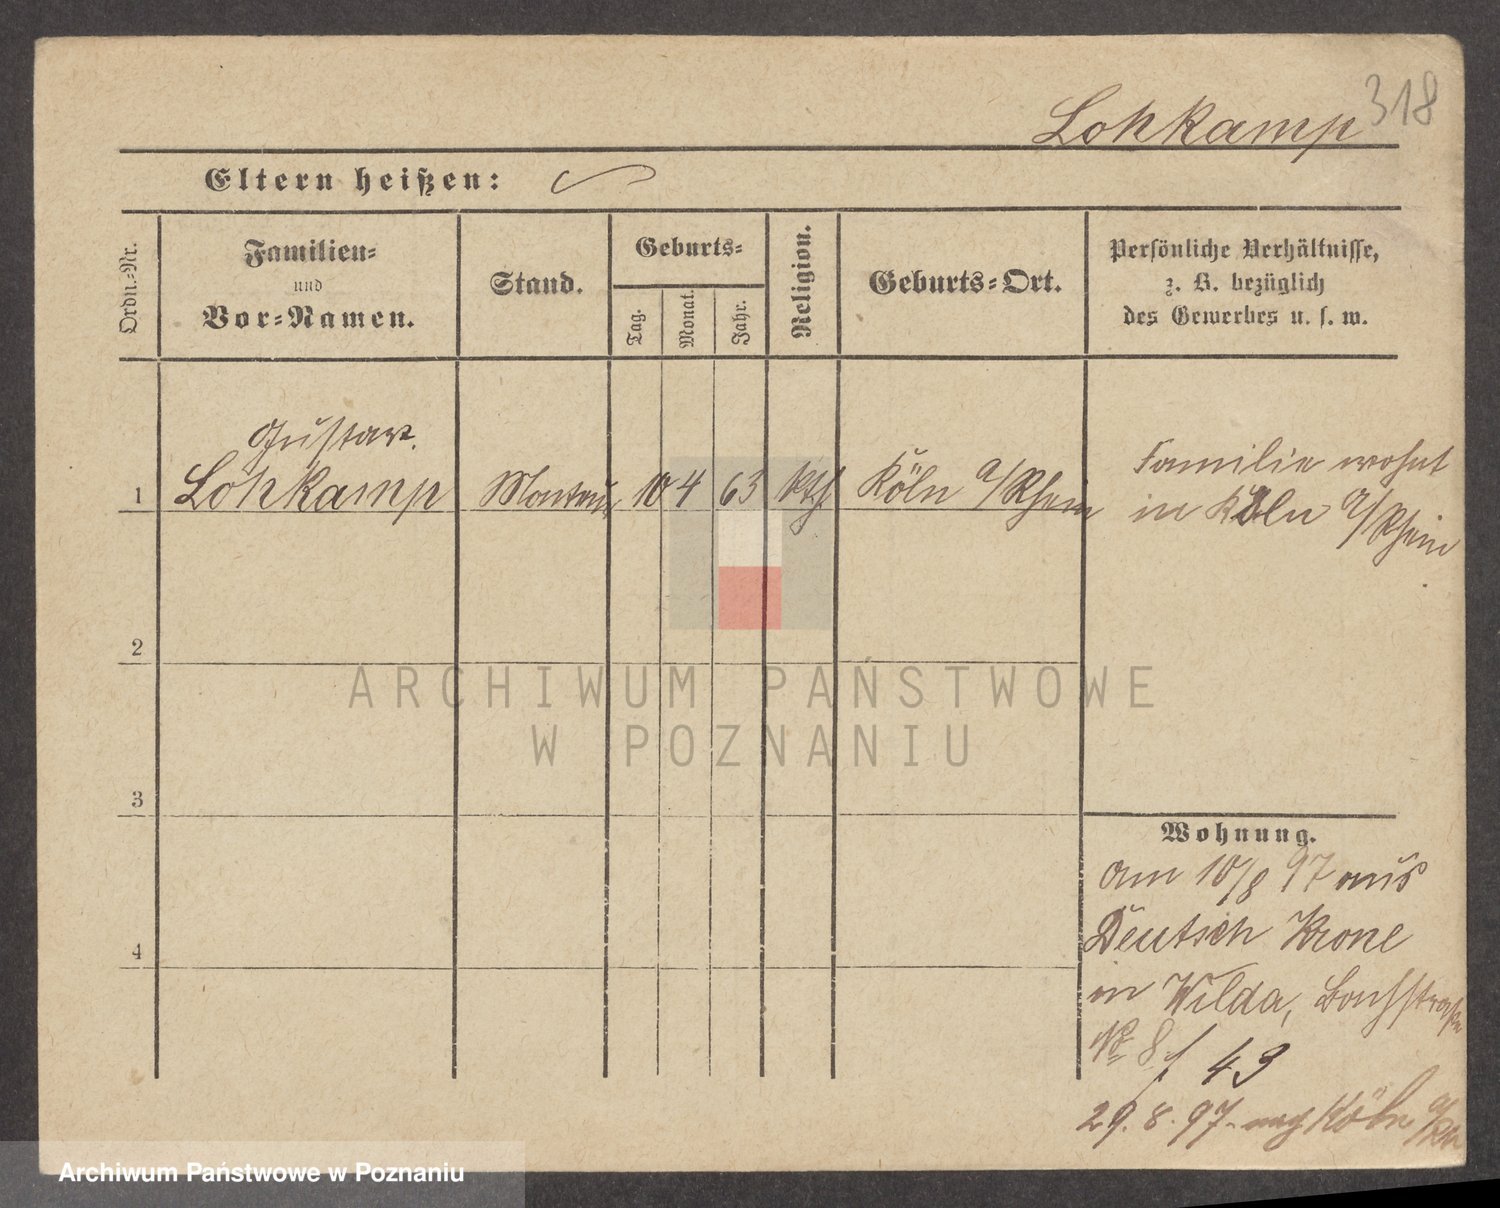 318
Lohkamp
Eltern heißen:
Ordn.-Nr.
Familien-
und
Vor-Namen.
Stand.
Geburts-
Tag.
Monat.
Jahr.
Religion.
Geburts-Ort.
Persönliche Verhältnisse,
z. B. bezüglich
des Gewerbes u. s. w.
Gustav.
1 Lohkamp Monteur 10 4 63 kth Köln a/Rhein
Familie wohnt
in Köln a/Rhein
2
ARCHIWUM PAŃSTWOWE
W POZNANIU
3
4
Wohnung.
am 10/8 97 aus
Deutsch Krone
in Wilda,
No 8 f 43
29.8.97. nach Köln a/Rh
Archiwum Państwowe w Poznaniu